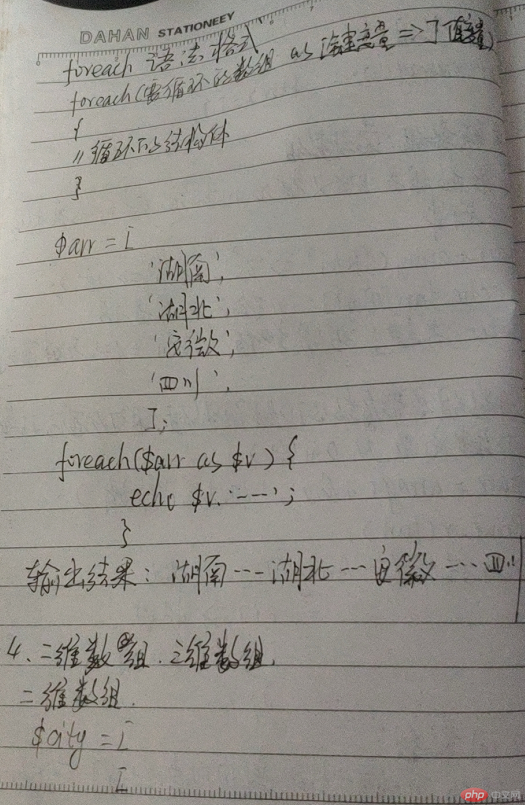 DAHAN STATIONEEY
foreach 语法格式
foreach(要循环的数组 as 键变量 => 值变量)
{
// 循环的结构体
}
$arr = [
'湖南',
'湖北',
'安徽',
'四川'.
];
foreach($arr as $v) {
echo $v.'---';
}
输出结果: 湖南---湖北---安徽---四川
4、二维数组.三维数组.
二维数组.
$city = [
[
php 中文网